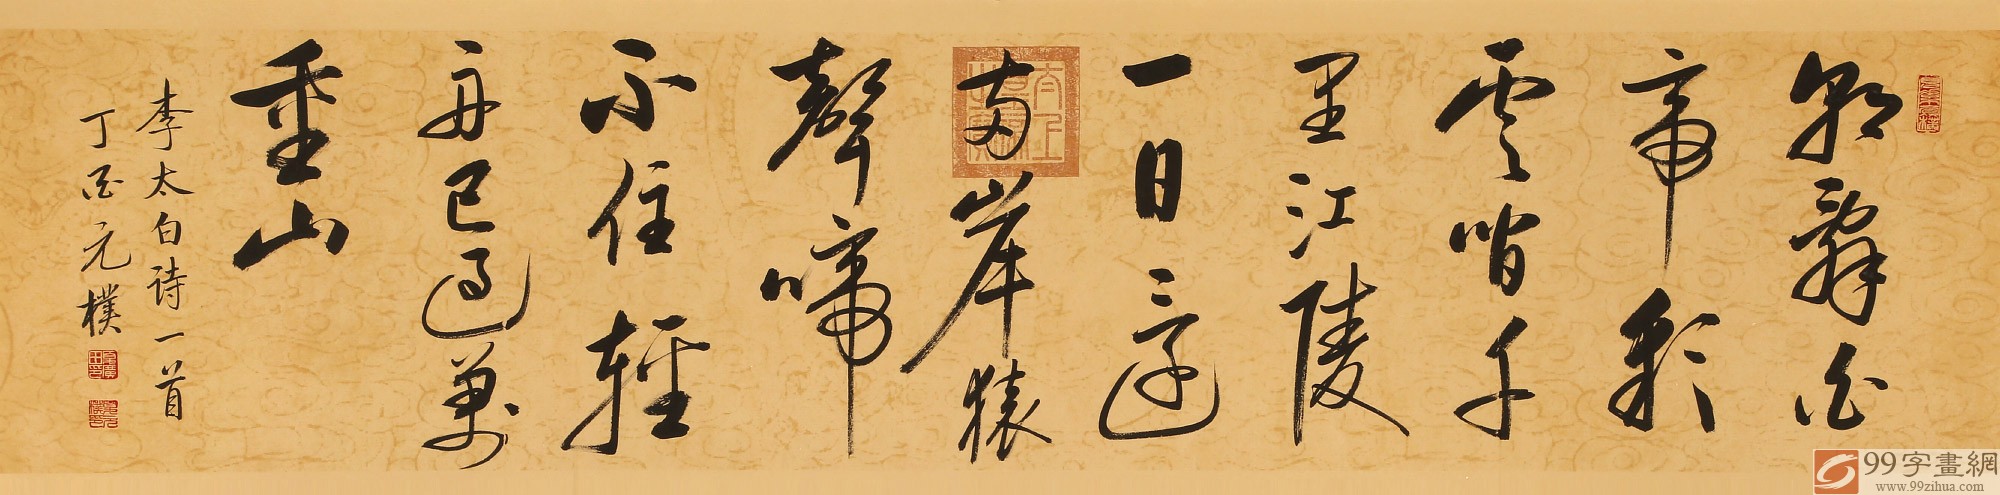 朝辭白
帝彩
雲間千
里江陵
一日還
兩岸猿
聲啼
不住輕
舟已過萬
重山
李太白诗一首
丁酉元樸
99字畫網
www.99zihua.com